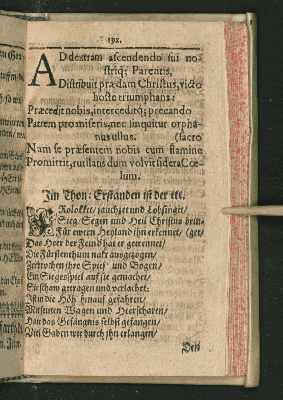 192.
AD dextram ascendendo sui no-
striq; Parentis,
Distribuit prædam Christus, victo
hoste triumphans:
Præcedit nobis, interceditq; precando
Patrem pro miseris, nec linquitur orpha-
nus ullus. (sacro
Nam se præsentem nobis cum flamine
Promittit, rutilans dum volvit sidera Cœ-
lum.
Im Thon: Erstanden ist der etc.
FRolokket/ jauchzet und Lobsinget/
Sieg/ Segen und Heil Christus brin-
Für ewren Heyland ihn erkennet/ (get/
Das Heer der Feind hat er getrennet/
Die Fürstenthum nakt außgezogen/
Zerbrochen ihre Spieß und Bogen/
Ein Siegesspiel auf sie gemachet/
Sie schaw getragen und verlachet:
Ist in die Höh hinauf gefahren/
Mit seinen Wagen und Heerscharen/
Hat das Gefängnis selbst gefangen/
Viel Gaben wir durch ihn erlangen/
Den